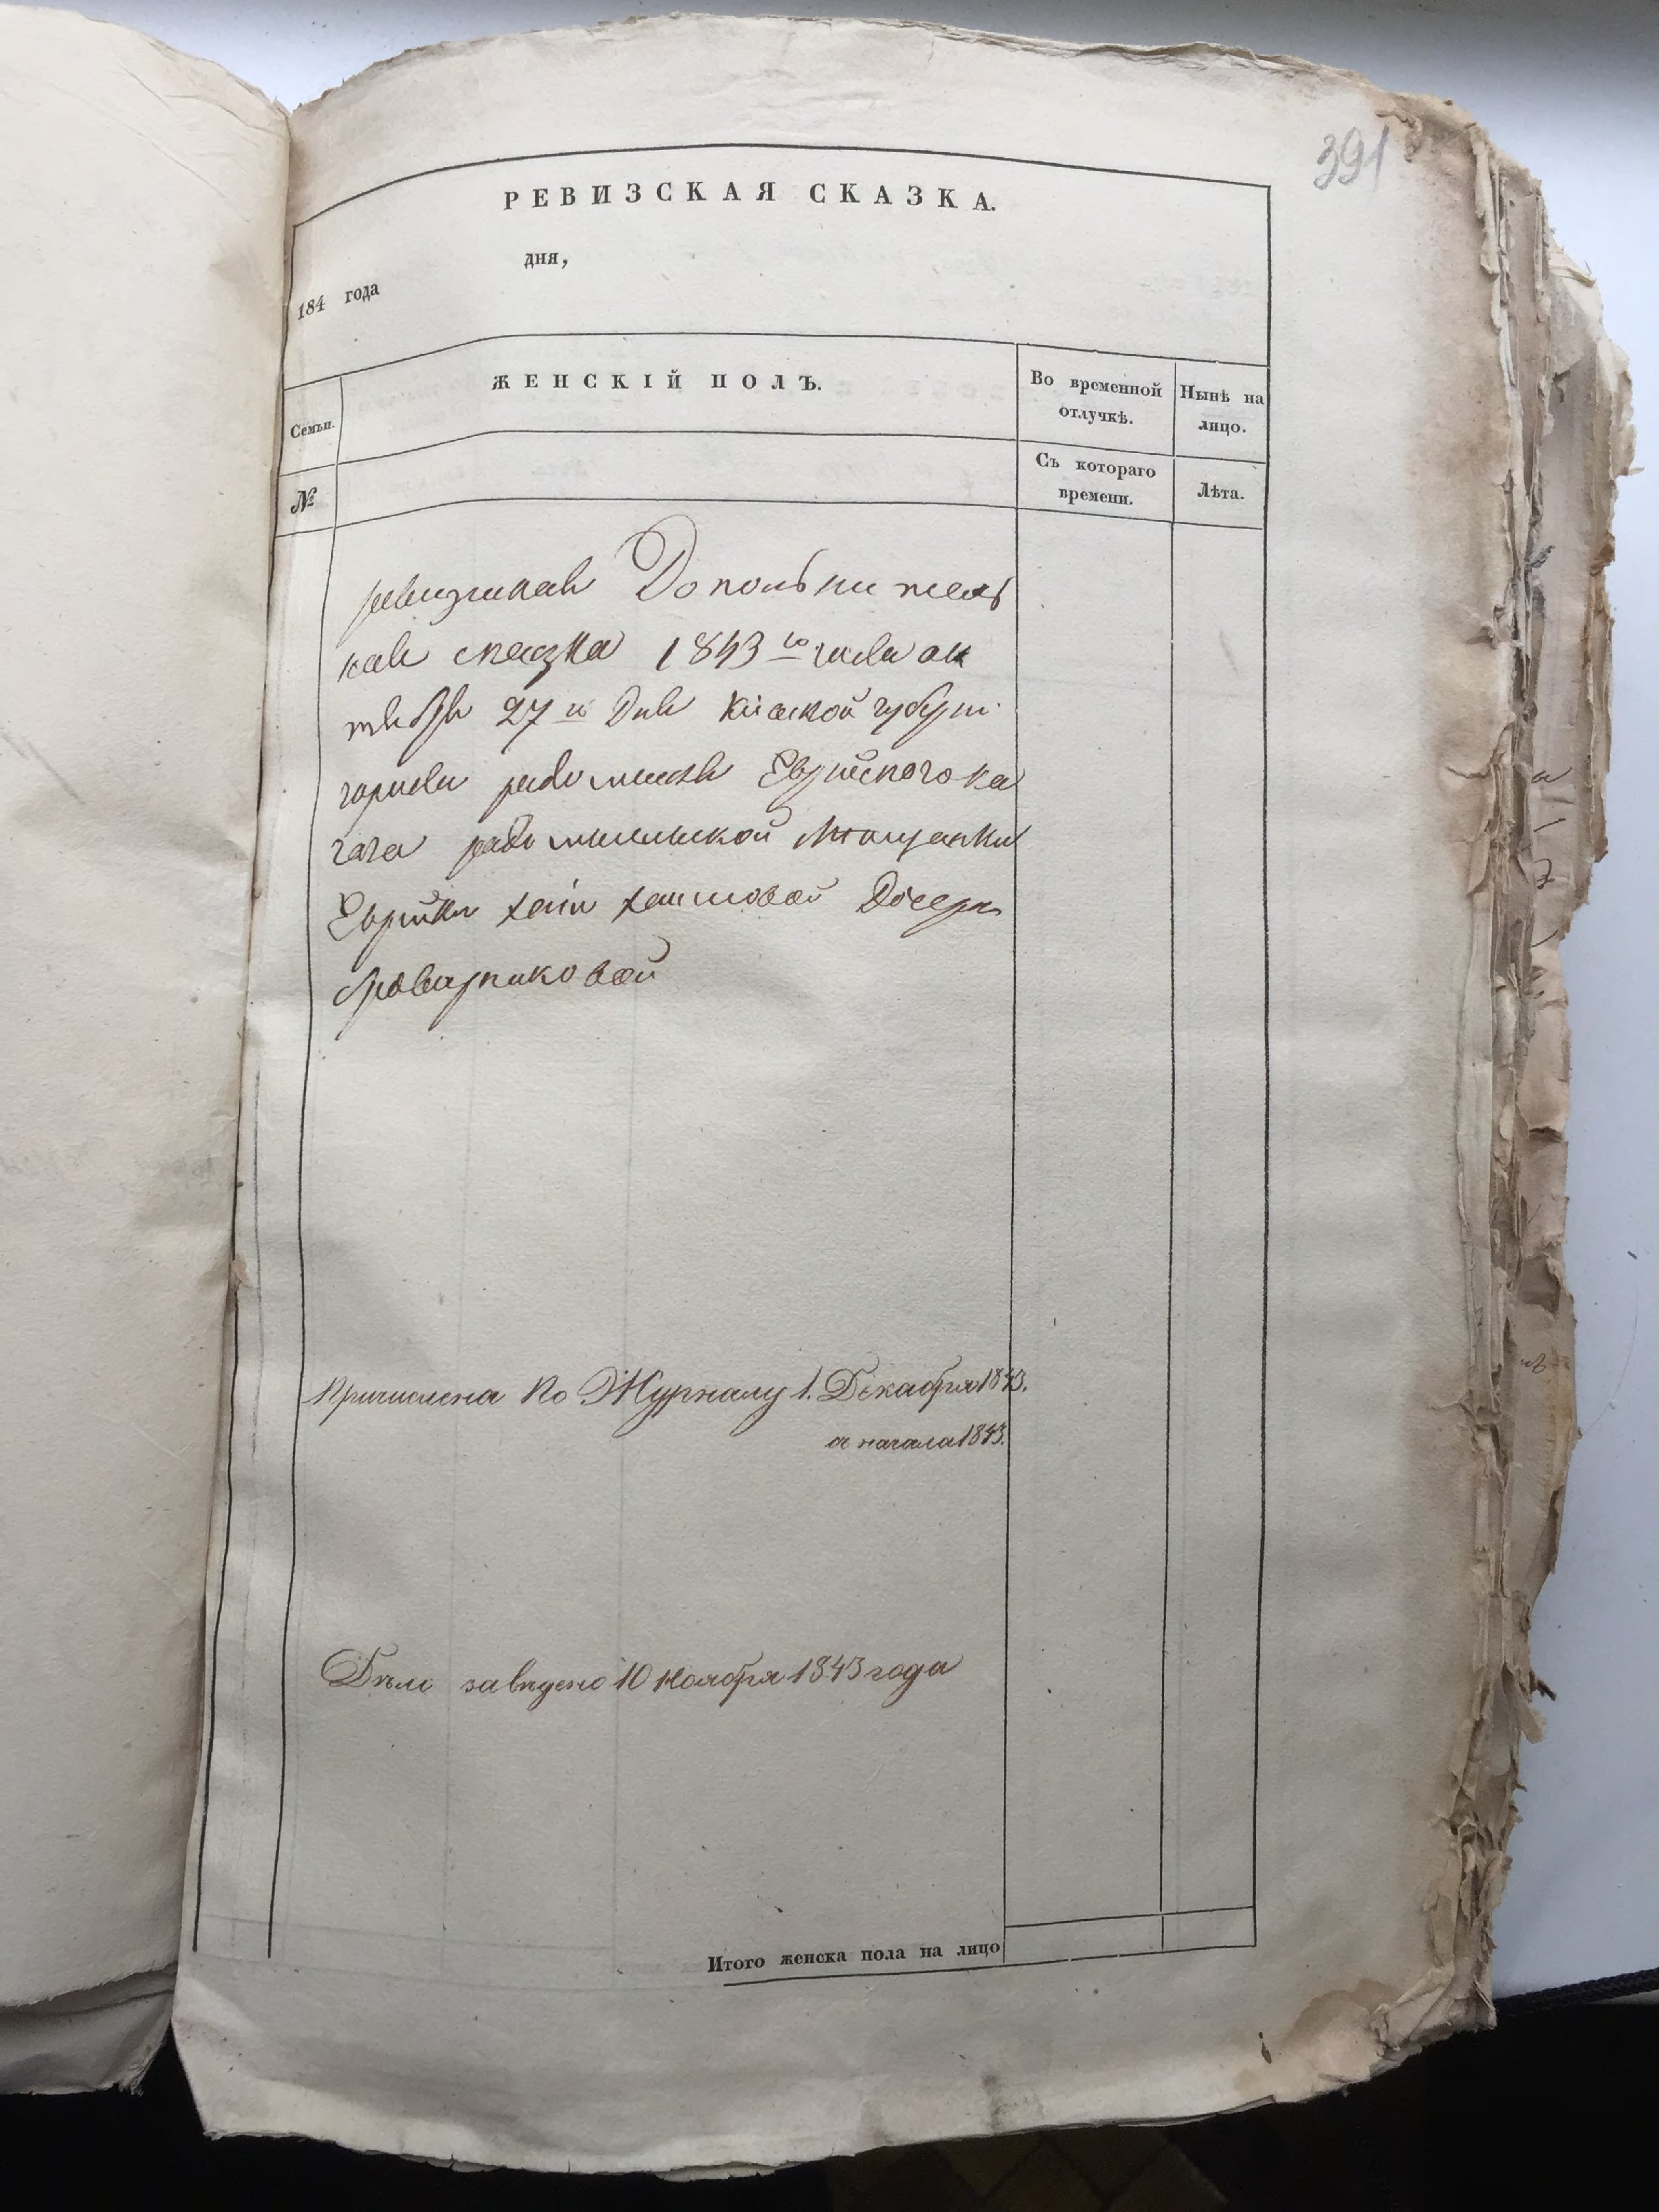 391
РЕВИЗСКАЯ СКАЗКА.
184 года дня,
ЖЕНСКІЙ ПОЛЪ.
Во временной отлучкѣ.
Нынѣ на лицо.
Семьи.
Съ котораго времени.
Лѣта.
№
ревизская Дополнитель
ная сказка 1843 го года ок
тября 27 го дня Кіевской губерн
города радомысля Еврейского ка
гала радомысльской Мещанки
Еврейки хаіи хаимовой Дочери
Проверниковой
Причислена по Журналу 1. Декабря 1843.
съ начала 1843.
Дѣло заведено 10 Ноября 1843 года
Итого женска пола на лицо